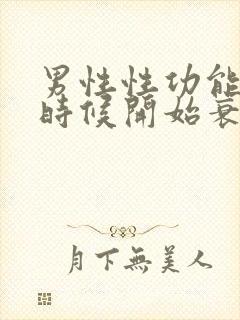 男性性功能
時候開始衰
月下無美人